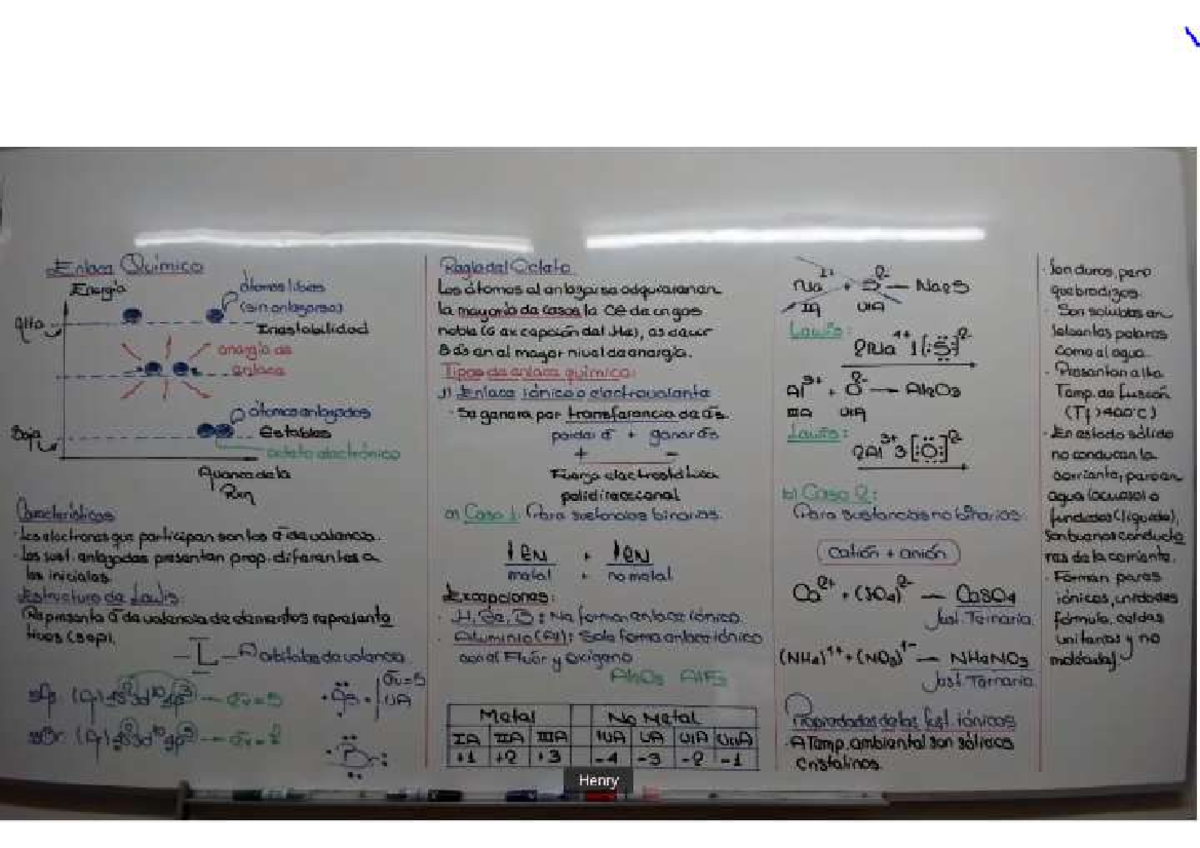 Enlace Químico
Energía
átomos libres
(sin enlazarse)
Alta
Inestabilidad
energía de
enlace
átomos enlazados
Baja
Estables
octeto electrónico
Avance de la
Rxn
Características
Los electrones que participan son los e⁻ de valencia.
Las sust. enlazadas presentan prop. diferentes a
las iniciales.
Estructura de Lewis:
Representa e⁻ de valencia de elementos representa
tivos (s o p).
orbitales de valencia
Regla del Octeto
Los átomos al enlazarse adquieren en
la mayoría de casos la CE de un gas
noble (a excepción del He), es decir
8 e⁻s en el mayor nivel de energía.
Tipos de enlace químico:
1) Enlace iónico o electrovalente
· Se genera por transferencia de e⁻s.
perder e⁻ + ganar e⁻s
+ −
Fuerza electrostática
polidireccional
a) Caso 1: Para sustancias binarias.
↓EN + ↑EN
metal + no metal
Excepciones:
· H, Be, B: No forman enlace iónico.
· Aluminio (Al): Solo forma enlace iónico
con el Flúor y Oxígeno
Al₂O₃ AlF₃
Metal No Metal
IA IIA IIIA IVA VA VIA VIIA
+1 +2 +3 -4 -3 -2 -1
Na¹⁺ + S²⁻ → Na₂S
IA VIA
Lewis:
2Na¹⁺ 1[:S:]²⁻
Al³⁺ + O²⁻ → Al₂O₃
IIIA VIA
Lewis:
2Al³⁺ 3[:O:]²⁻
b) Caso 2:
Para sustancias no binarias.
catión + anión
Ca²⁺ + (SO₄)²⁻ → CaSO₄
Sust. Ternaria
(NH₄)¹⁺ + (NO₃)¹⁻ → NH₄NO₃
Sust. Ternaria
Propiedades de las sust. iónicas
· A Temp. ambiental son sólidos
cristalinos.
· Son duros, pero
quebradizos
· Son solubles en
solventes polares
como el agua.
· Presentan alta
Temp. de fusión
(Tf > 400°C)
· En estado sólido
no conducen la
corriente, pero en
agua (acuoso) o
fundidos (líquido),
son buenos conducto
res de la corriente.
· Forman pares
iónicos, unidades
fórmula, celdas
unitarias y no
moléculas
Henry